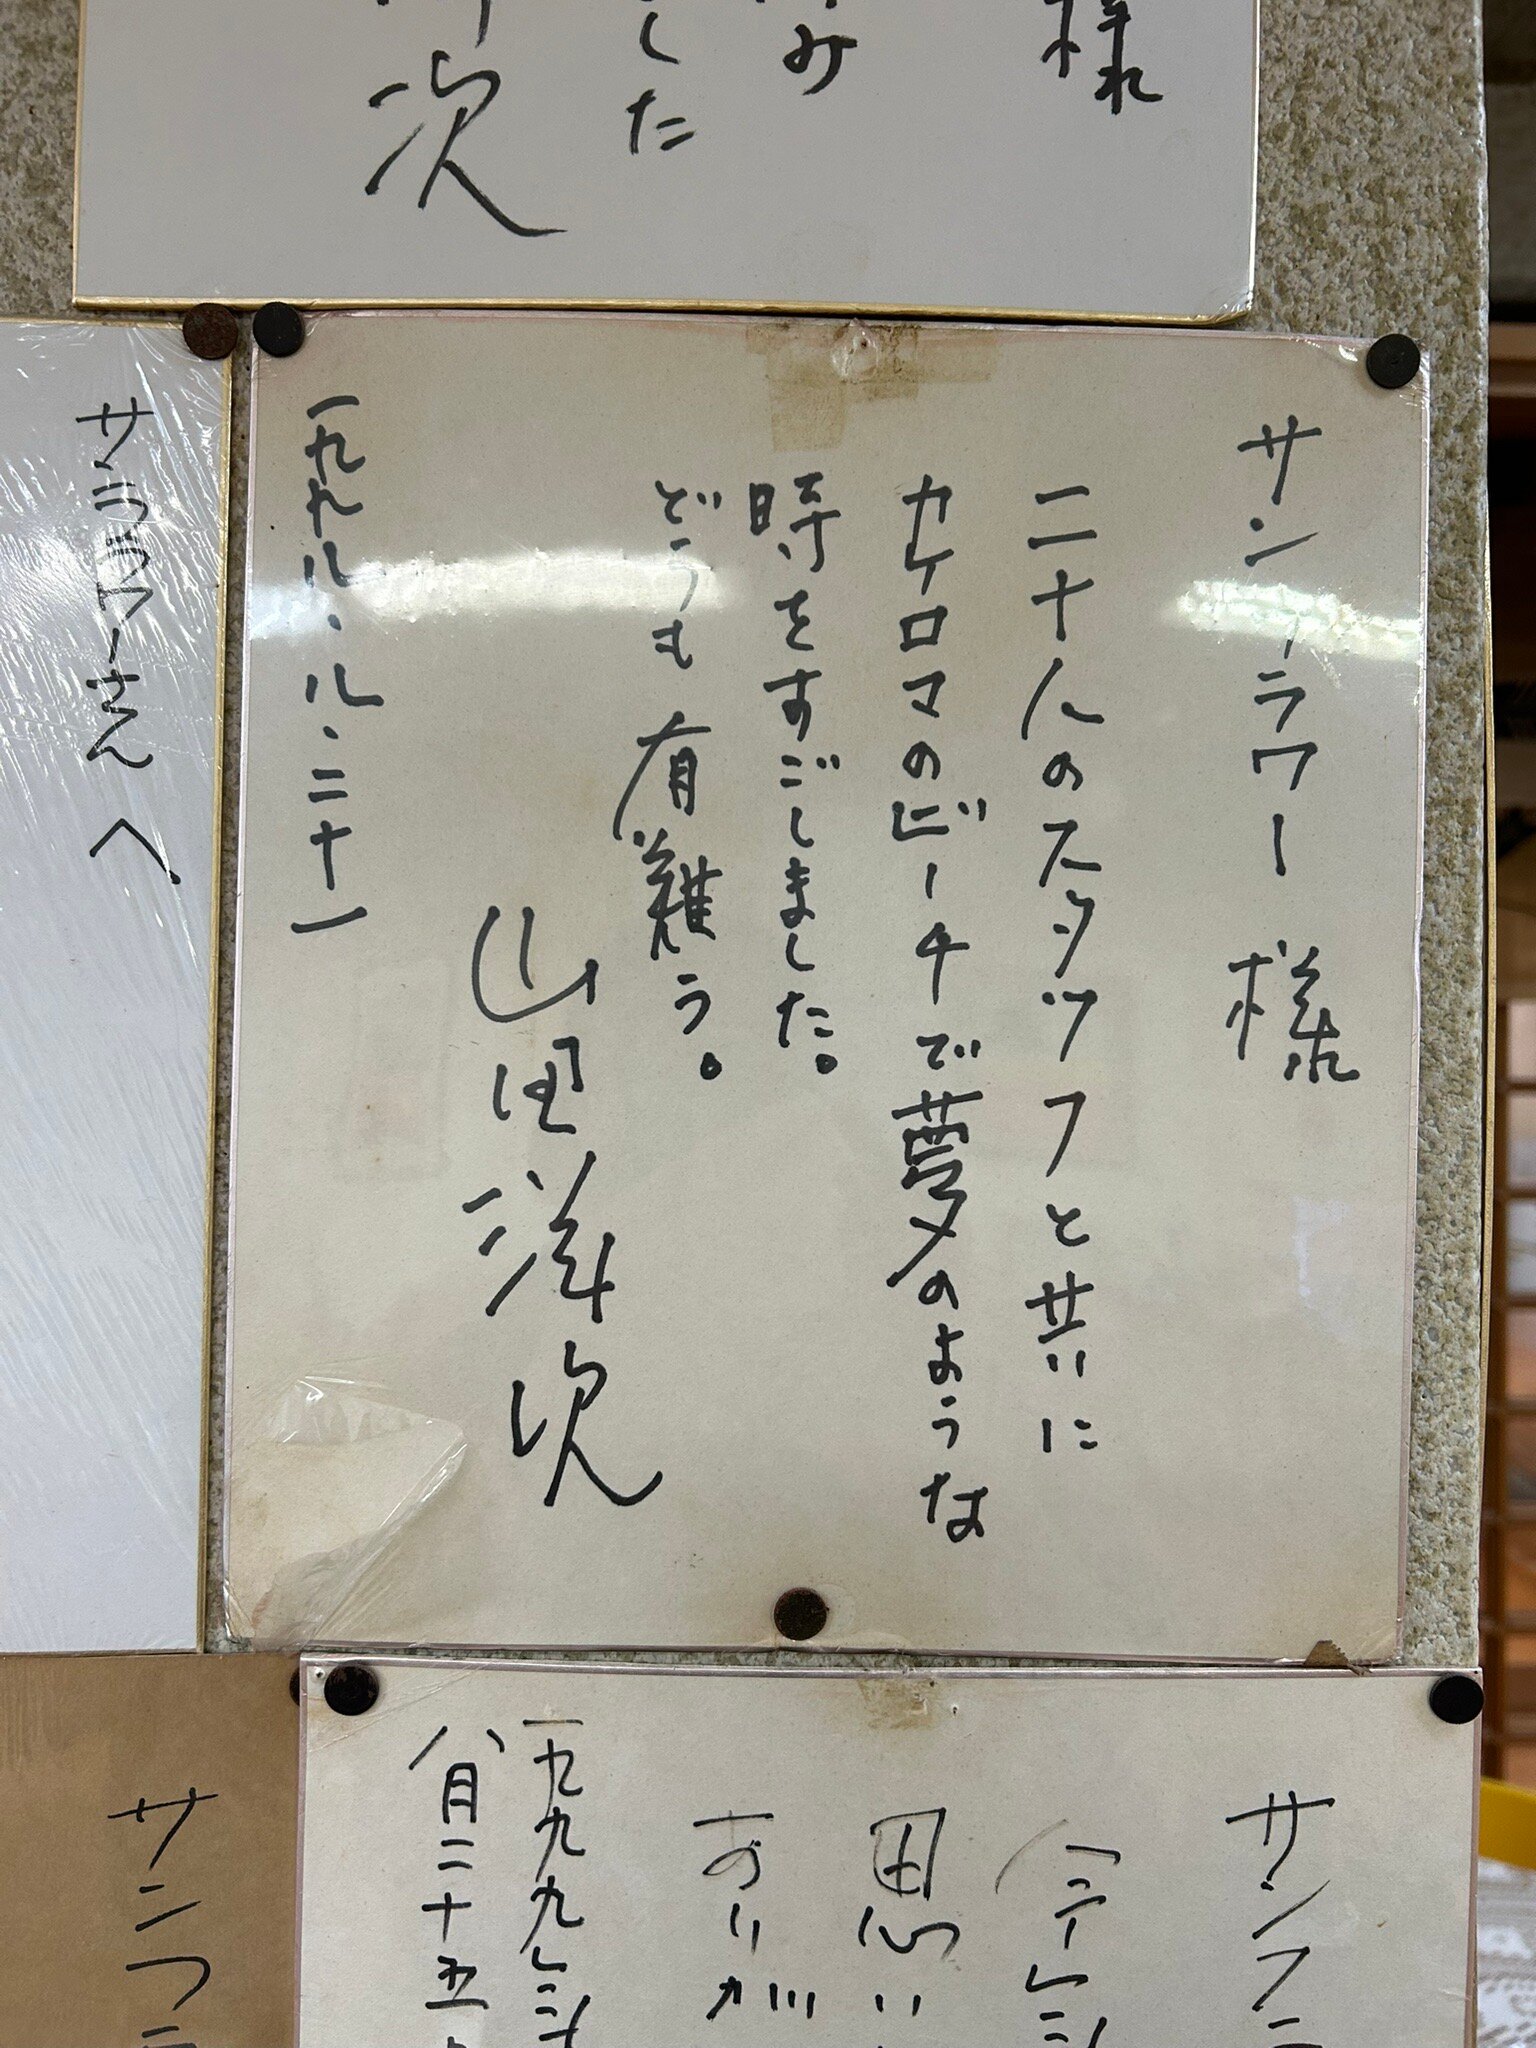 様
み
した
次
サンフラワー様
二十人のスタッフと共に
カケロマのビーチで夢のような
時をすごしました。
どうも有難う。
山田洋次
一九九八・八・二十一
サンフラワーさんへ
サンフラ
今年
思い
ありが
一九九九年
八月二十五
サンフラ